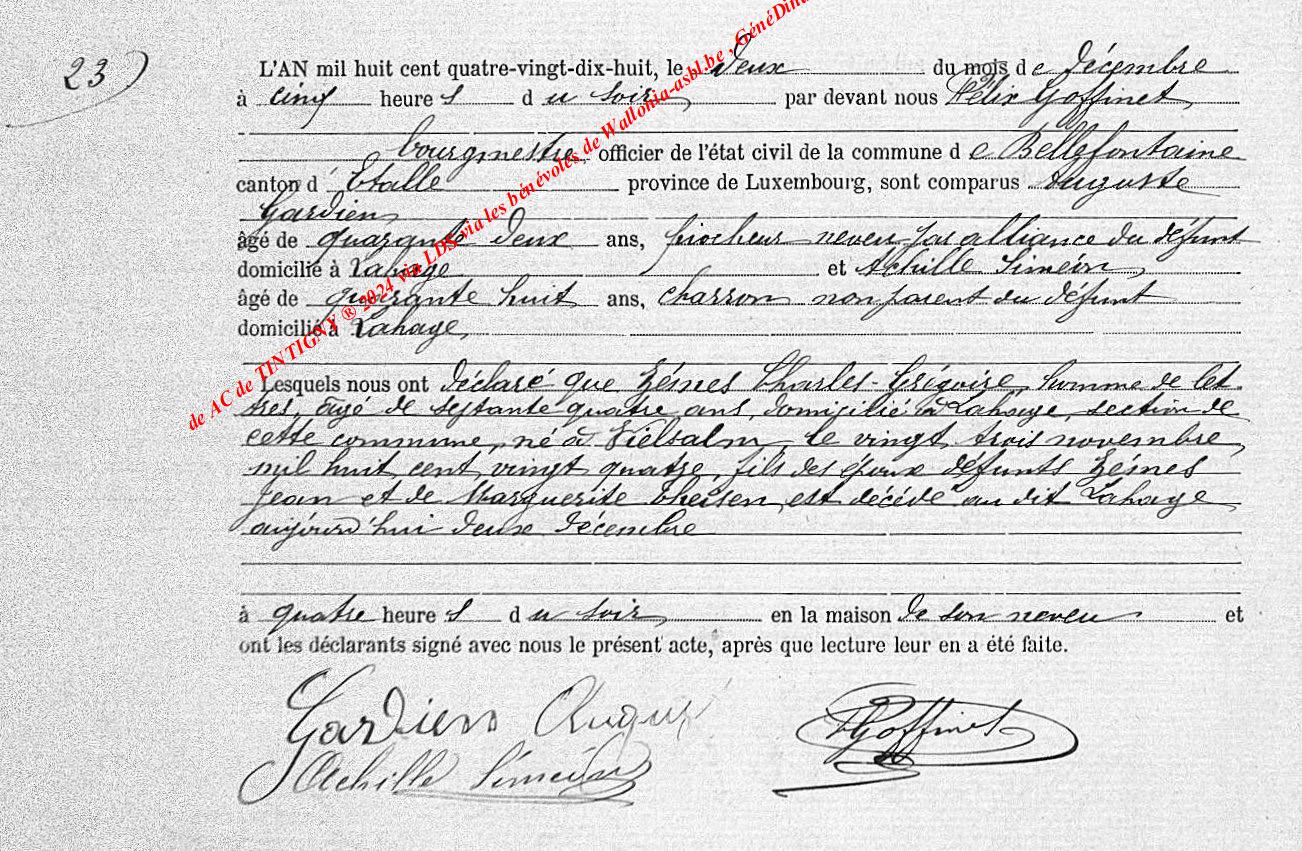 23
L'AN mil huit cent quatre-vingt-dix-huit, le deux du mois de décembre
à cinq heures du soir, par devant nous Félix Goffinet,
bourgmestre, officier de l'état civil de la commune de Bellefontaine
canton d'Etalle province de Luxembourg, sont comparus Auguste
Gardien,
âgé de quarante deux ans, piocheur neveu par alliance du défunt
domicilié à Lahage et Achille Siméon,
âgé de quarante huit ans, charron non parent du défunt
domicilié à Lahage,
Lesquels nous ont déclaré que Charles-Grégoire, homme de let-
tres, âgé de septante quatre ans, domicilié à Lahage, section de
cette commune, né à Vielsalm, le vingt trois novembre
mil huit cent vingt quatre, fils des époux défunts
Jean et de Marguerite Theisen, est décédé au dit Lahage
aujourd'hui deux décembre
à quatre heures du soir, en la maison de son neveu et
ont les déclarants signé avec nous le présent acte, après que lecture leur en a été faite.
Gardien August
Achille Siméon
F Goffinet
de AC de TINTIGNY ® 2024 via LDS via les bénévoles de Wallonia-asbl.be , GénéDina